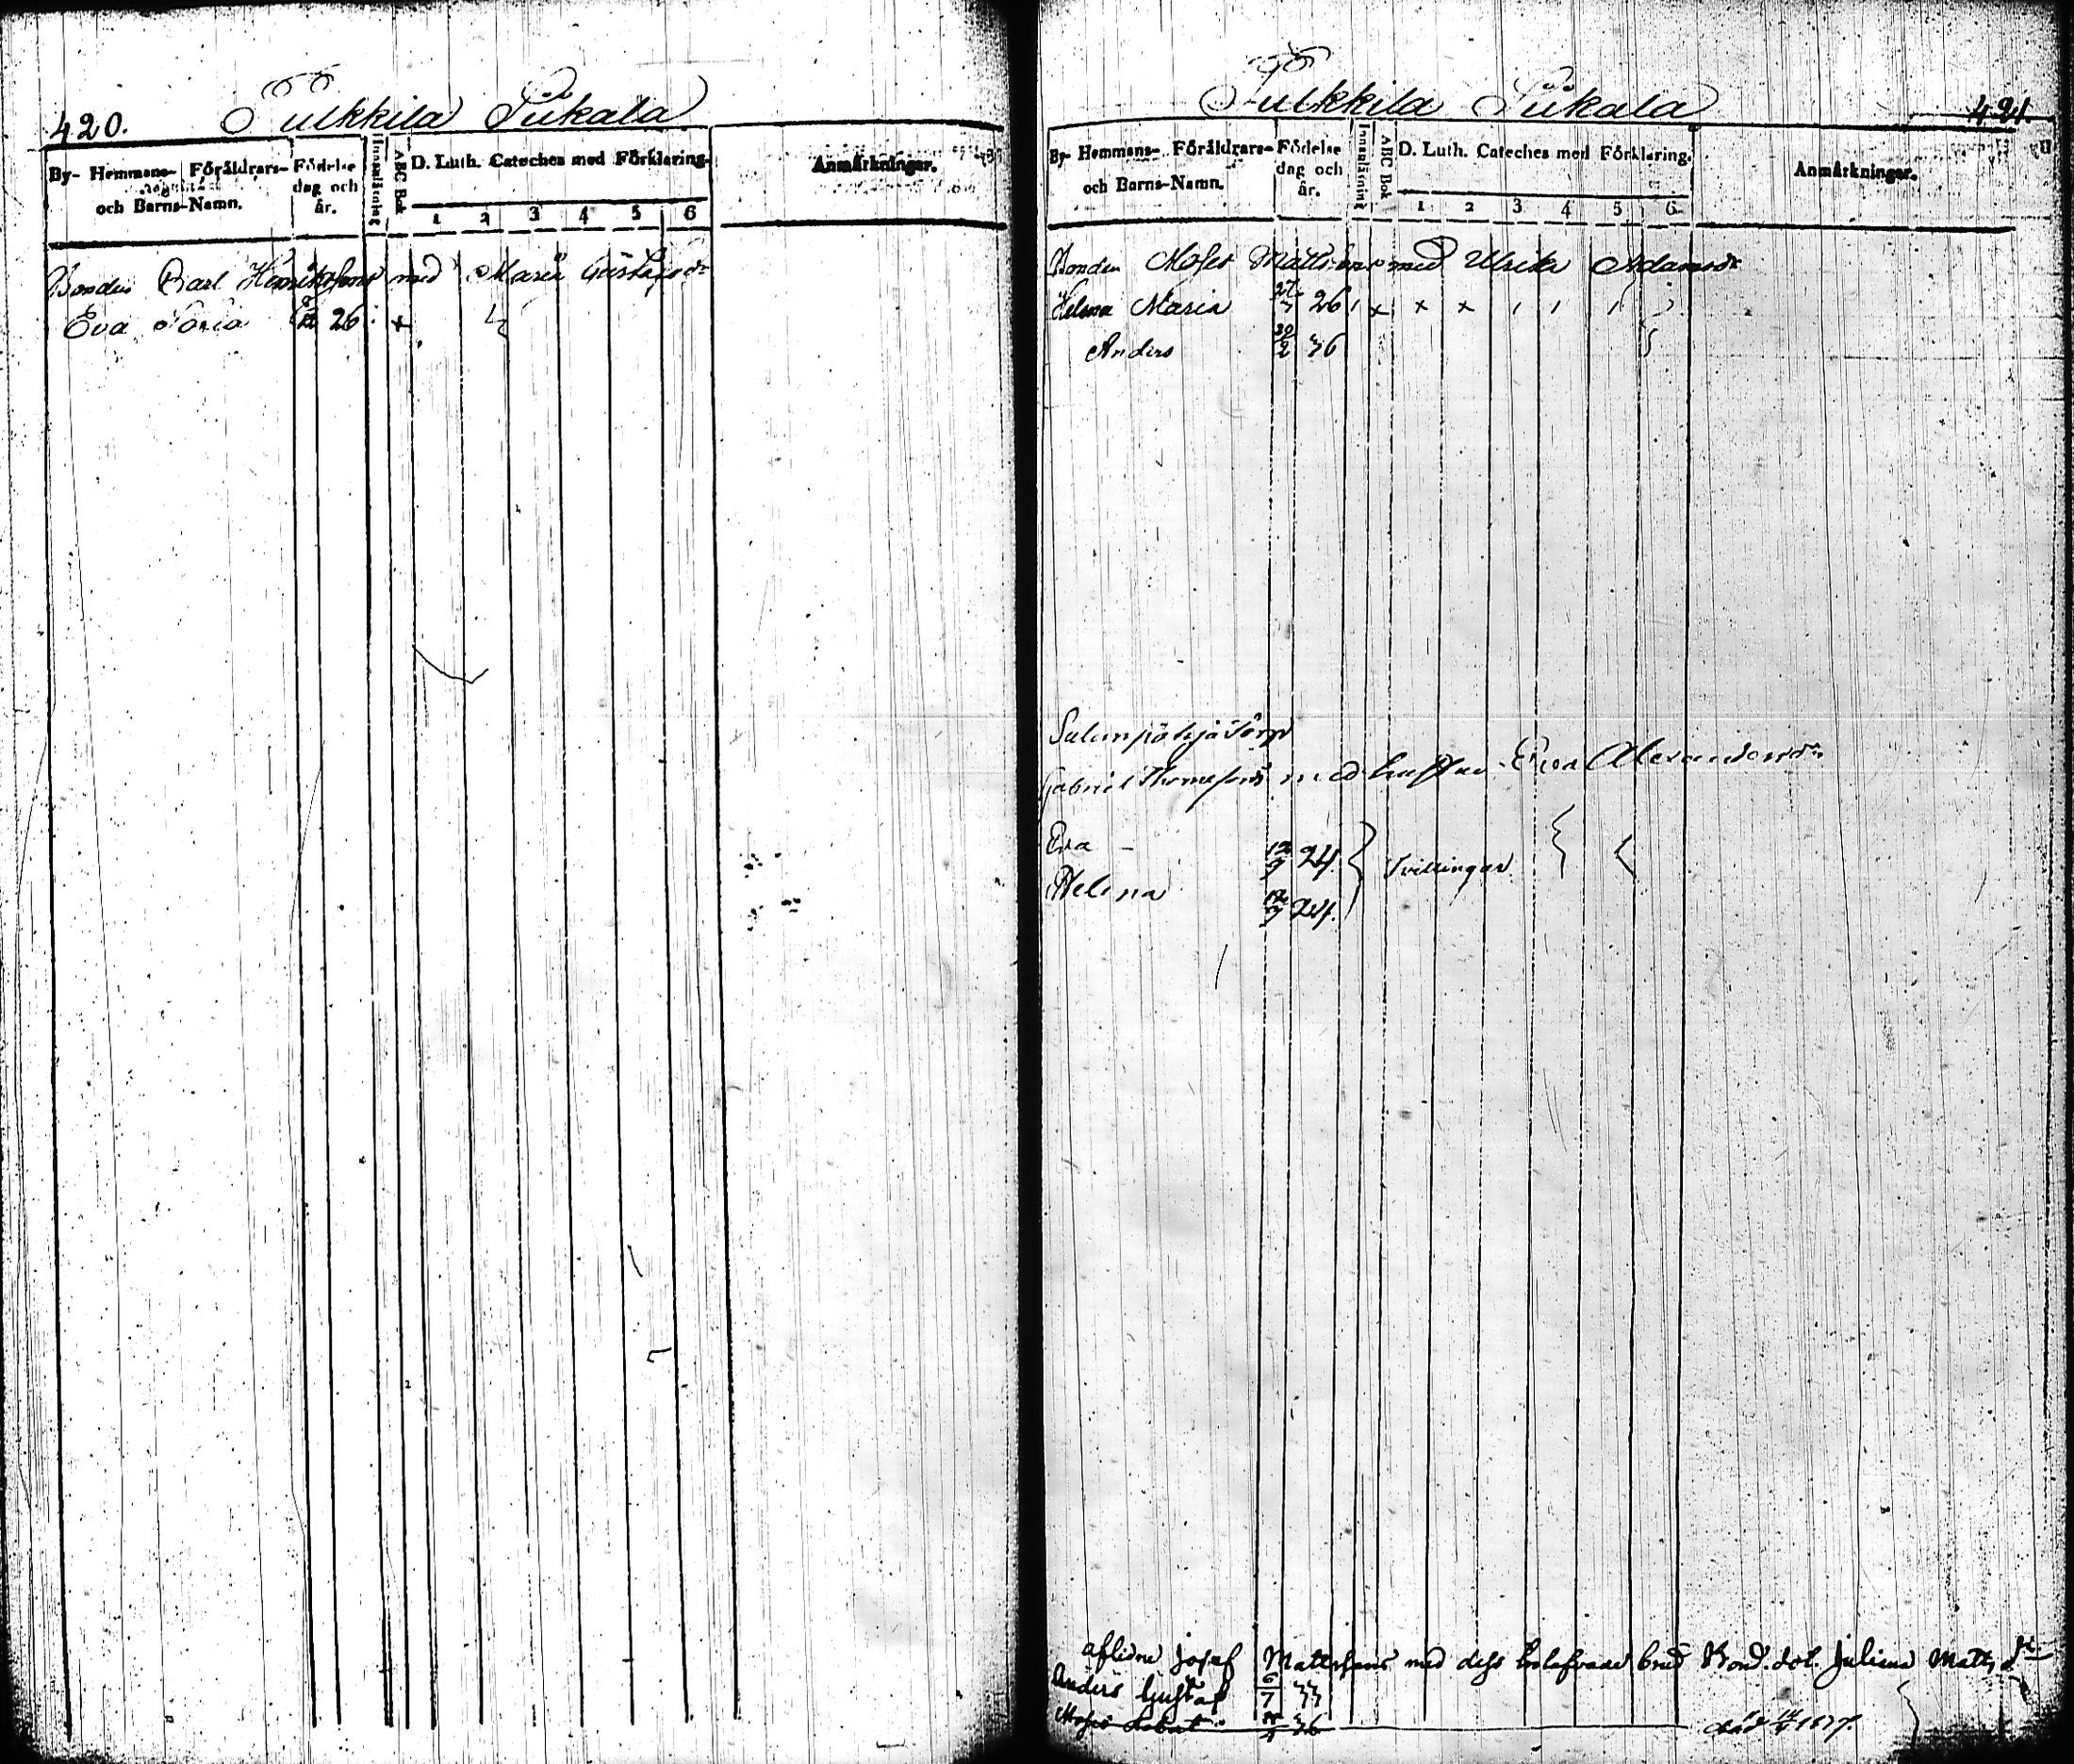 420. Tulkkila Sukala
By- Hemmans- Föräldrars- och Barns-Namn. Födelse dag och år. Innanläsning ABC Bok D. Luth. Cateches med Förklaring. Anmärkningar.
1 2 3 4 5 6
Bonden Carl Henrikssons med Maria Gustafsdr
Eva Soria 26
Tulkkila Sukala 421.
By- Hemmans- Föräldrars- och Barns-Namn. Födelse dag och år. Innanläsning ABC Bok D. Luth. Cateches med Förklaring. Anmärkningar.
1 2 3 4 5 6
Bonden Moses Mattssons med Ulrika Adamsdr
Helena Maria 27/7 26
Anders 30/2 36
Gabriel Thomessons med hustru Eva Alexandersdr
Eva 12/9 24.
Tvillingar.
Helena 12/9 24.
aflidne Josef Mattssons med dess Bond. dot. Juliana Matts dr.
Anders Gustaf 6/7 33
Moses 36 1837.